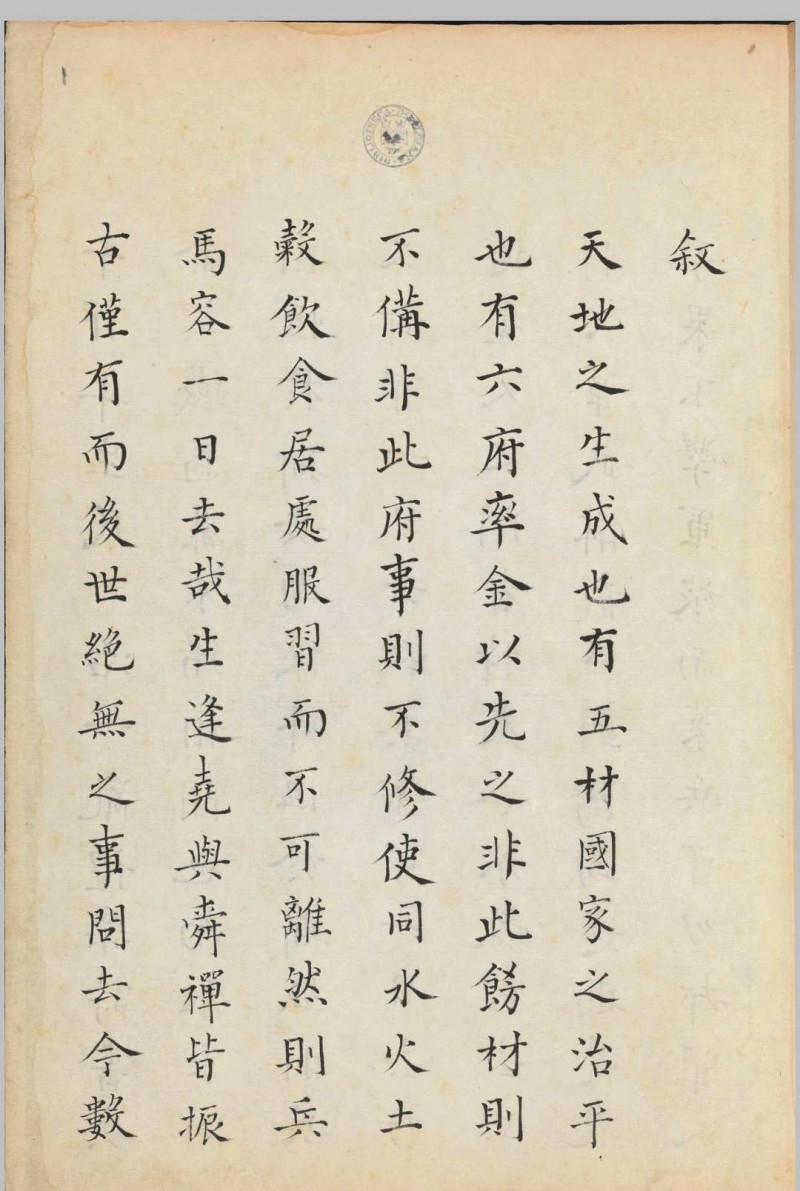 敘
天地之生成也有五材國家之治平
也有六府率金以先之非此餝材則
不備非此府事則不修使同水火土
穀飲食居處服習而不可離然則兵
馬容一日去哉生逢堯與舜禪皆振
古僅有而後世絕無之事問去今數